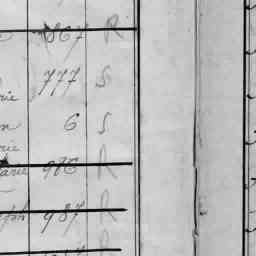 867 R
777 S
rie
n 6 S
rie
Marie 986 R
eph 987 R
R